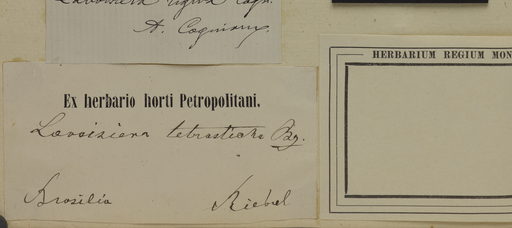 Lavoisiera rigida Cogn.
A. Cogniaux.
HERBARIUM REGIUM MON
Ex herbario horti Petropolitani.
Lavoisiera tetrasticha Bg.
Brasilia Riedel